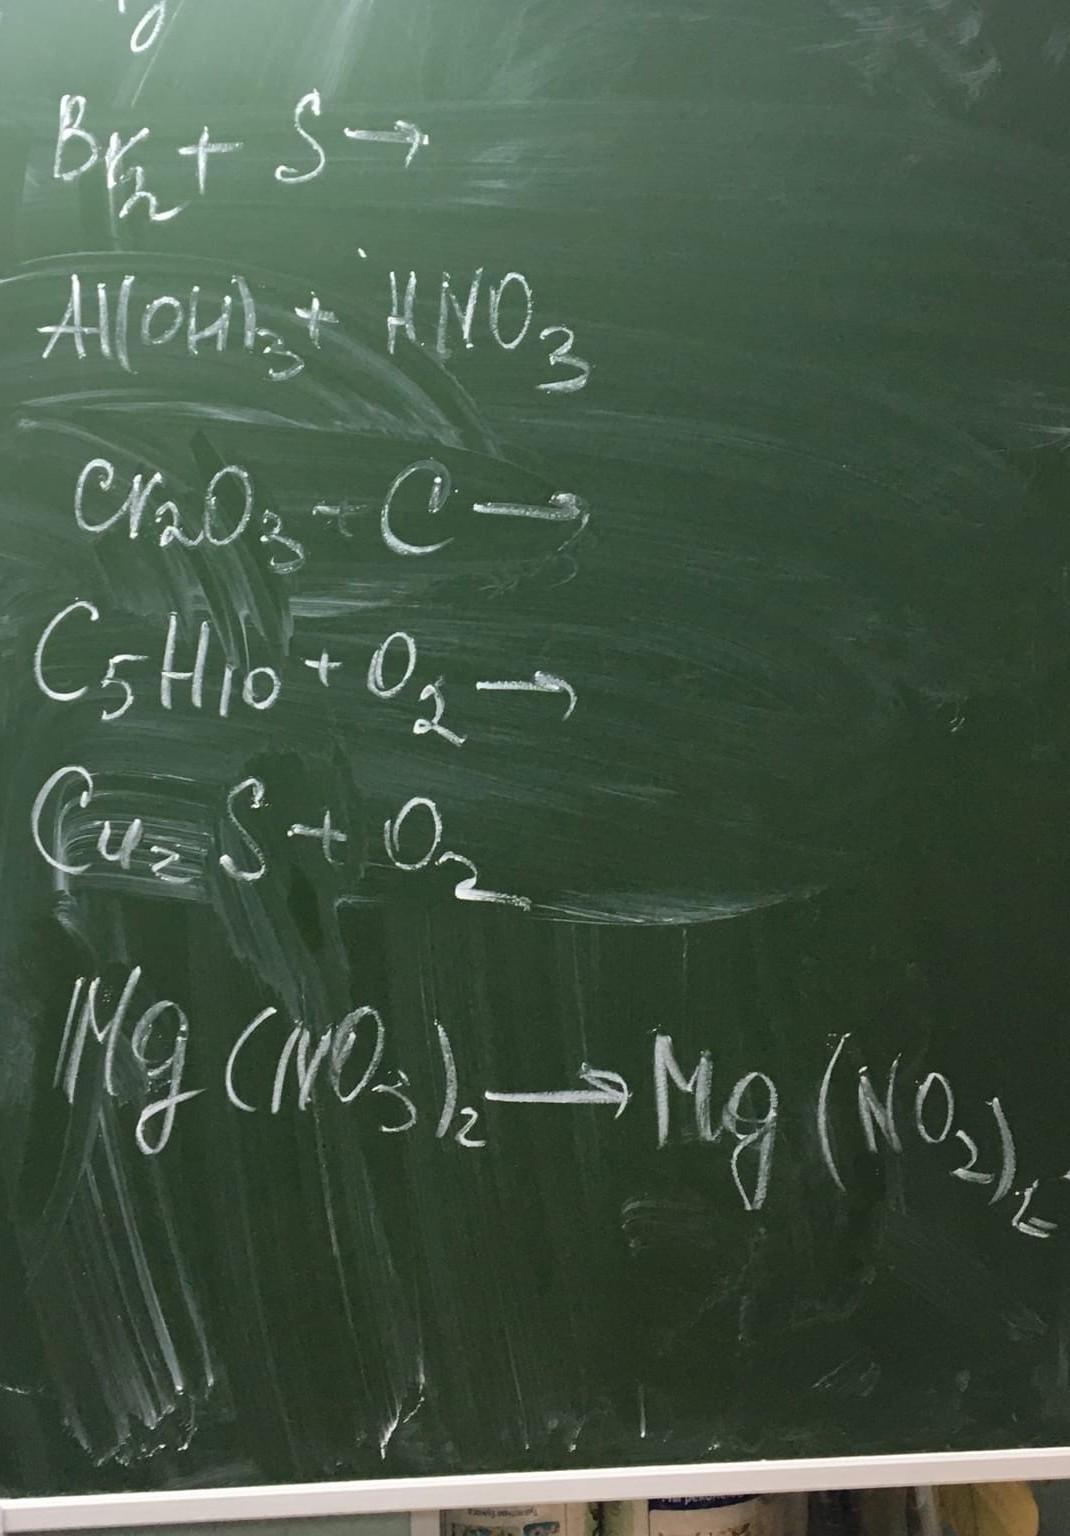 Br₂ + S →
Al(OH)₃ + HNO₃
Cr₂O₃ + C →
C₅H₁₀ + O₂ →
Cu₂S + O₂
Mg(NO₃)₂ → Mg(NO₂)₂